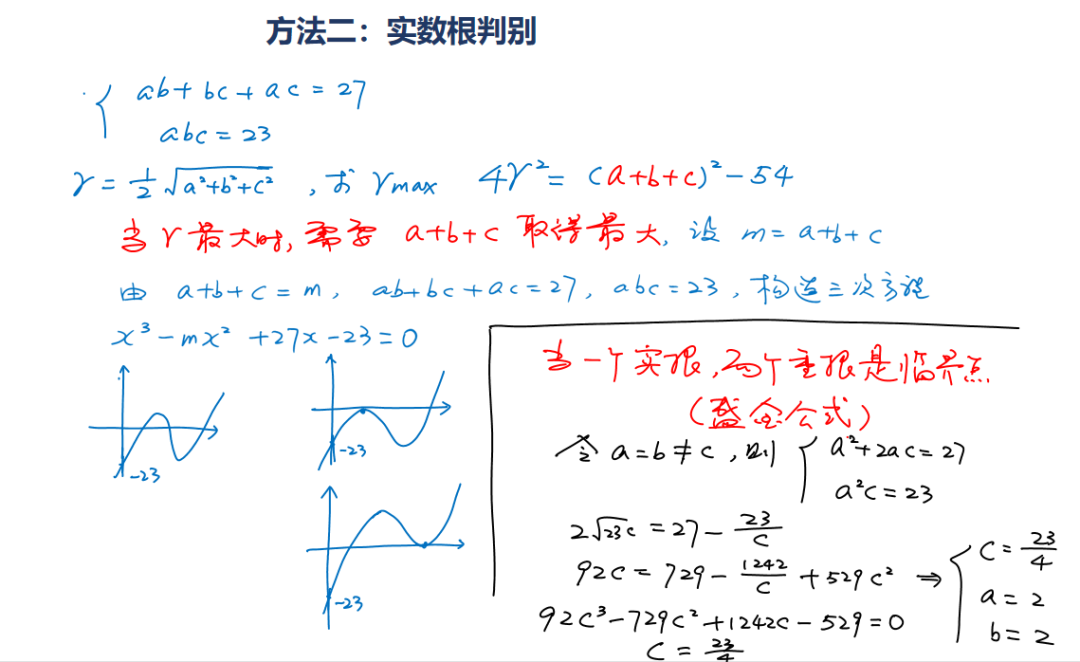 方法二：实数根判别
ab + bc + ac = 27
abc = 23
r = 1/2 √(a²+b²+c²) , 求 rmax 4r² = (a+b+c)² - 54
当 r 最大时, 需要 a+b+c 取得最大, 设 m = a+b+c
由 a+b+c = m, ab+bc+ac = 27, abc = 23, 构造三次方程
x³ - mx² + 27x - 23 = 0
-23
-23
-23
当一个实根, 两个重根是临界点
(盛金公式)
令 a = b ≠ c , 则 { a² + 2ac = 27
a²c = 23
2√23c = 27 - 23/c
92c = 729 - 1242/c + 529c² ⇒ { c = 23/4
a = 2
b = 2
92c³ - 729c² + 1242c - 529 = 0
c = 23/4